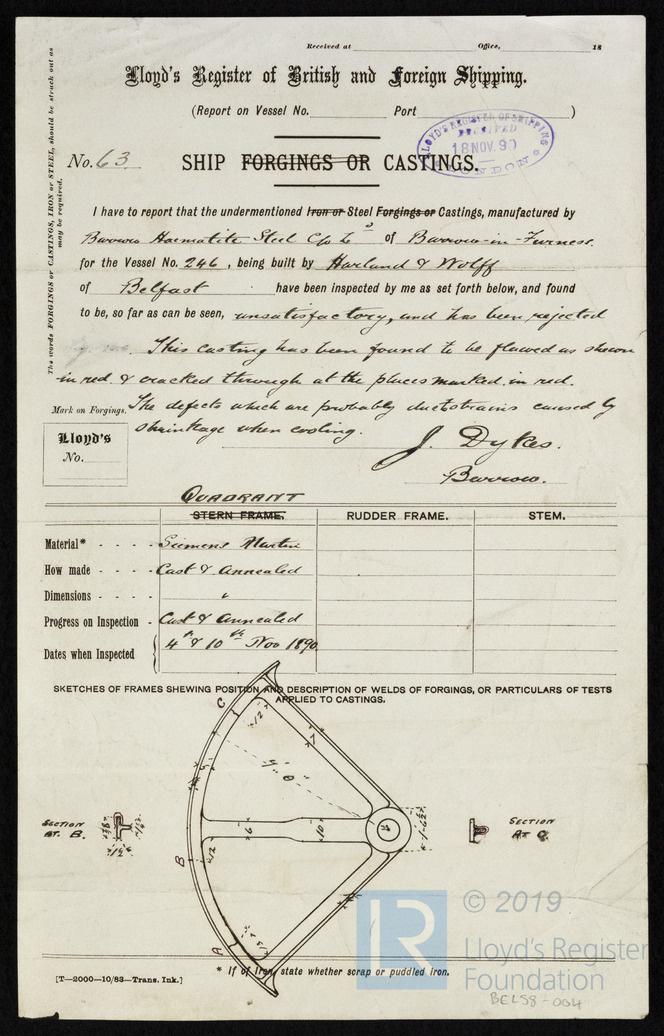 Received at Office, 18
Lloyd's Register of British and Foreign Shipping.
(Report on Vessel No. Port )
LLOYD'S REGISTER OF SHIPPING
RECEIVED
18 NOV. 90
LONDON
No. 63
SHIP FORGINGS OR CASTINGS.
The words FORGINGS or CASTINGS, IRON or STEEL, should be struck out as
may be required.
I have to report that the undermentioned Iron or Steel Forgings or Castings, manufactured by
Barrow Haematite Steel Co Ld of Barrow-in-Furness
for the Vessel No. 246, being built by Harland & Wolff
of Belfast have been inspected by me as set forth below, and found
to be, so far as can be seen, unsatisfactory, and has been rejected
This casting has been found to be flawed as shewn
in red & cracked through at the places marked in red.
Mark on Forgings. The defects which are probably due to strains caused by
shrinkage when cooling.
Lloyd's
No.
J. Dykes.
Barrow.
QUADRANT
STERN FRAME. RUDDER FRAME. STEM.
Material* - - - - Siemens Martin
How made - - - - Cast & Annealed
Dimensions - - - - "
Progress on Inspection - Cast & Annealed
Dates when Inspected 4th & 10th Nov 1890
SKETCHES OF FRAMES SHEWING POSITION AND DESCRIPTION OF WELDS OF FORGINGS, OR PARTICULARS OF TESTS
APPLIED TO CASTINGS.
C
12
7
5
SECTION
AT. B.
6
10
SECTION
AT C.
B
12
A
© 2019
Lloyd's Register
Foundation
* If of Iron, state whether scrap or puddled iron.
[T—2000—10/83—Trans. Ink.]
BELS8-004